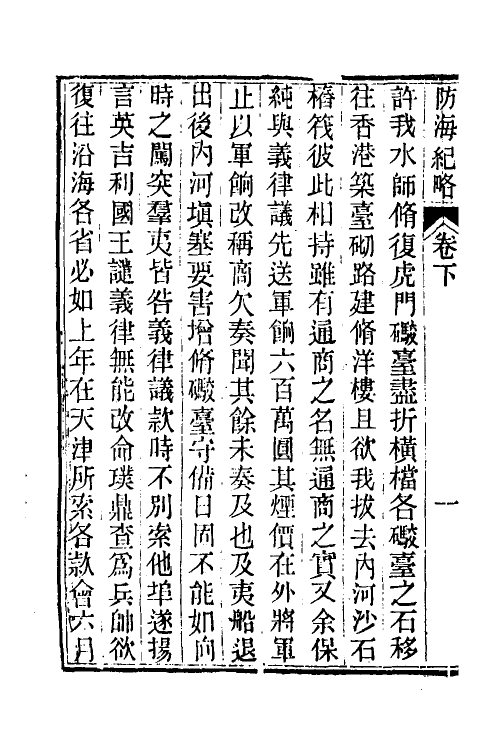 防海紀略 卷下 一
許我水師脩復虎門礮臺盡折橫檔各礮臺之石移
往香港築臺砌路建脩洋樓且欲我拔去內河沙石
樁筏彼此相持雖有通商之名無通商之實又余保
純與義律議先送軍餉六百萬圓其煙價在外將軍
止以軍餉改稱商欠奏聞其餘未奏及也及夷船退
出後內河塡塞要害增脩礮臺守備日固不能如向
時之闖突羣夷皆咎義律議款時不別索他埠遂揚
言英吉利國王譴義律無能改命璞鼎查爲兵帥欲
復往沿海各省必如上年在天津所索各款會六月